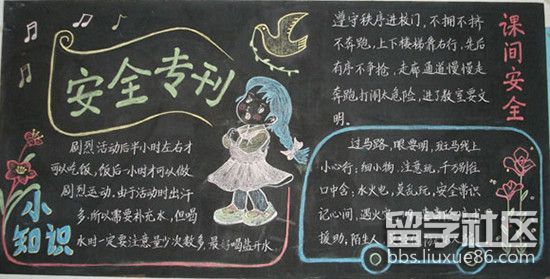 安全专刊
剧烈活动后半小时左右才
可以吃饭，饭后一小时才可以做
剧烈运动。由于活动时出汗
多，所以需要补充水，但喝
水时一定要注意量少次数多，最好喝盐开水
小
知识
遵守秩序进校门，不拥不挤
不奔跑，上下楼梯靠右行，先后
有序不争抢，走廊通道慢慢走
奔跑打闹太危险，进了教室要文
明。
课间安全
过马路，眼要明，斑马线上
小心行；细小物，注意玩，千万别往
口中含；水火电，莫乱玩，安全常识
记心间，遇火
援助；陌生人
留学社区
bbs.liuxue86.com